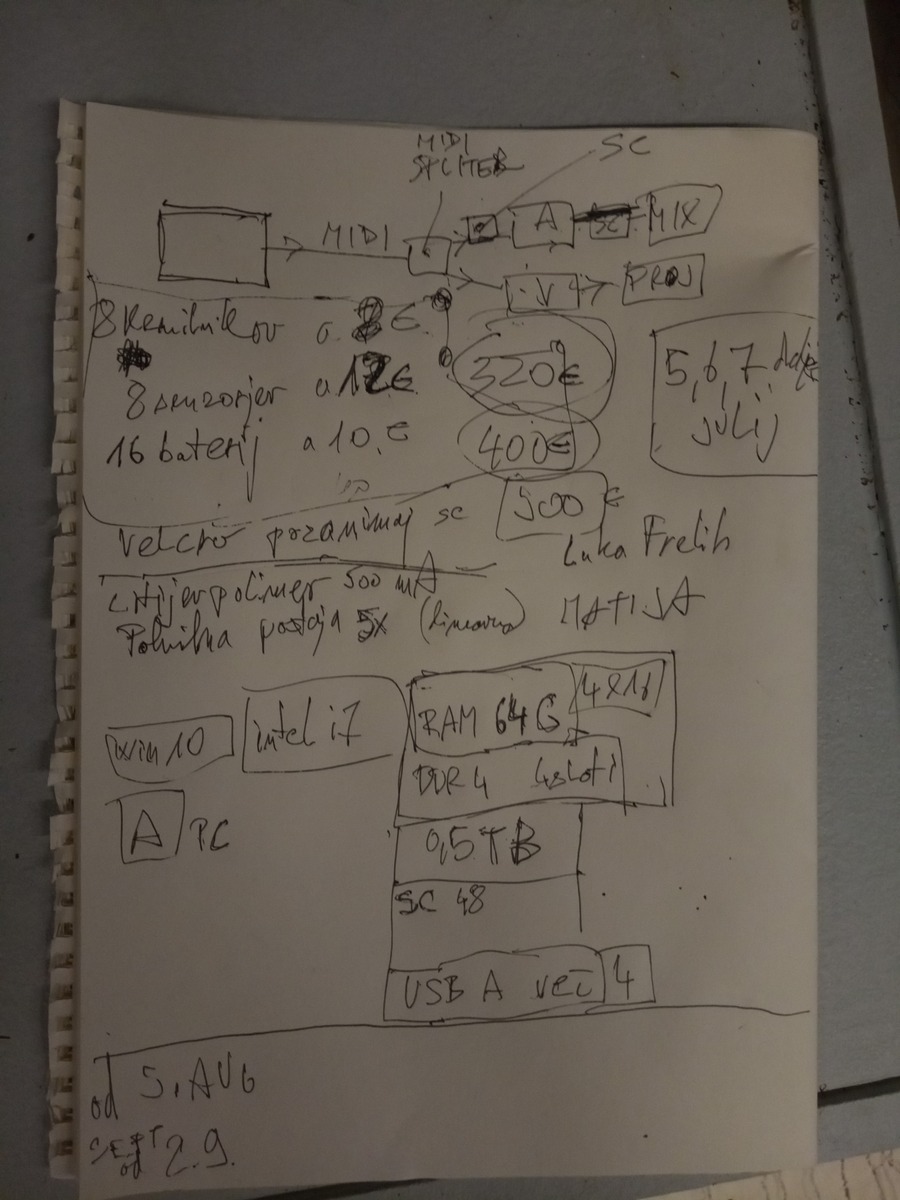 MIDI
SPLITER
SC
MIDI
A
SC
MIX
V
PROJ
8 a 8 €
8 senzorjev a 12€
320€
16 baterij a 10.€
400€
5,6,7,
julij
Velcro pozanimaj se
500 €
Luka Frelih
Litijev polimer 500 mA
Polnilna postaja 5x
MATIJA
win 10
intel i7
RAM 64G
4x16
DDR4 4sloti
A PC
0,5TB
SC 48
USB A več 4
od 5. AVG
SEPT
od 2.9.